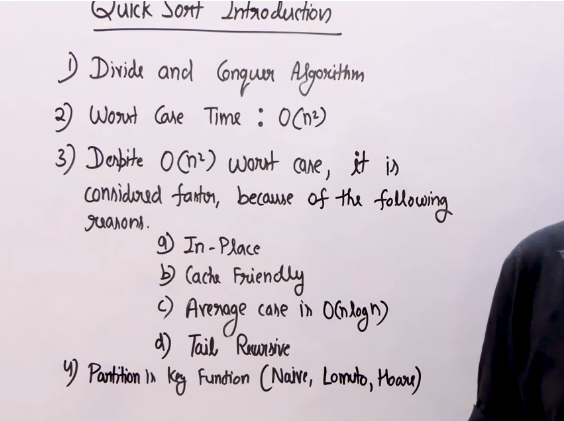 Quick Sort Introduction
1) Divide and Conquer Algorithm
2) Worst Case Time : O(n²)
3) Despite O(n²) worst case, it is
considered faster, because of the following
reasons.
a) In-Place
b) Cache Friendly
c) Average case is O(nlogn)
d) Tail Recursive
4) Partition is Key Function (Naive, Lomuto, Hoare)